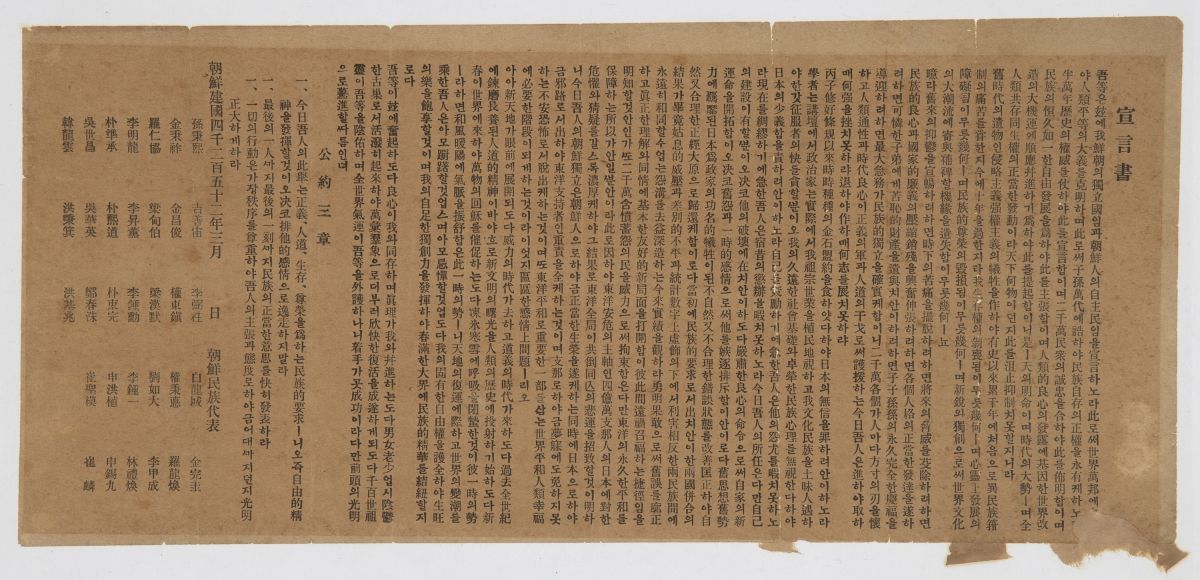 宣言書
吾等은玆에我鮮朝의獨立國임과朝鮮人의自主民임을宣言하노라此로써世界萬邦에告하
야人類平等의大義를克明하며此로써子孫萬代에誥하야民族自存의正權을永有케하노라
半萬年歷史의權威를仗하야此를宣言함이며二千萬民衆의誠忠을合하야此를佈明함이며
民族의恒久如一한自由發展을爲하야此를主張함이며人類的良心의發露에基因한世界改
造의大機運에順應幷進하기爲하야此를提起함이니是ㅣ天의明命이며時代의大勢ㅣ며全
人類共存同生權의正當한發動이라天下何物이던지此를沮止抑制치못할지니라
舊時代의遺物인侵略主義强權主義의犧牲을作하야有史以來累千年에처음으로異民族箝
制의痛苦를嘗한지今에十年을過한지라我生存權의剝喪됨이무릇幾何ㅣ며心靈上發展의
障礙됨이무릇幾何ㅣ며民族的尊榮의毁損됨이무릇幾何ㅣ며新銳와獨創으로써世界文化
의大潮流에寄與補裨할機緣을遺失함이무릇幾何ㅣ뇨
噫라舊來의抑鬱을宣暢하려하면時下의苦痛을擺脫하려하면將來의脅威를芟除하려하면
民族的良心과國家的廉義의壓縮銷殘을興奮伸張하려하면各個人格의正當한發達을遂하
려하면可憐한子弟에게苦恥的財産을遺與치안이하려하면子子孫孫의永久完全한慶福을
導迎하려하면最大急務가民族的獨立을確實케함이니二千萬各個가人마다方寸의刃을懷
하고人類通性과時代良心이正義의軍과人道의干戈로써護援하는今日吾人은進하야取하
매何强을挫치못하랴退하야作하매何志를展치못하랴
丙子修好條規以來時時種種의金石盟約을食하얏다하야日本의無信을罪하려안이하노라
學者는講壇에서政治家는實際에서我祖宗世業을植民地視하고我文化民族을土昧人遇하
야한갓征服者의快를貪할ᄲᅮᆫ이오我의久遠한社會基礎와卓犖한民族心理를無視한다하야
日本의少義함을責하려안이하노라自己를策勵하기에急한吾人은他의怨尤를暇치못하노
라現在를綢繆하기에急한吾人은宿昔의懲辦을暇치못하노라今日吾人의所任은다만自己
의建設이有할ᄲᅮᆫ이오決코他의破壞에在치안이하도다嚴肅한良心의命令으로써自家의新
運命을開拓함이오決코舊怨과一時的感情으로써他를嫉逐排斥함이안이로다舊思想舊勢
力에羈縻된日本爲政家의功名的犧牲이된不自然又不合理한錯誤狀態를改善匡正하야自
然又合理한正經大原으로歸還케함이로다當初에民族的要求로서出치안이한兩國倂合의
結果가畢竟姑息的威壓과差別的不平과統計數字上虛飾의下에서利害相反한兩民族間에
永遠히和同할수업는怨溝를去益深造하는今來實績을觀하라勇明果敢으로써舊誤를廓正
하고眞正한理解와同情에基本한友好的新局面을打開함이彼此間遠禍召福하는捷徑임을
明知할것안인가ᄯᅩ二千萬含憤蓄怨의民을威力으로써拘束함은다만東洋의永久한平和를
保障하는所以가안일ᄲᅮᆫ안이라此로因하야東洋安危의主軸인四億萬支那人의日本에對한
危懼와猜疑를갈스록濃厚케하야그結果로東洋全局이共倒同亡의悲運을招致할것이明하
니今日吾人의朝鮮獨立은朝鮮人으로하야금正當한生榮을遂케하는同時에日本으로하야
금邪路로서出하야東洋支持者인重責을全케하는것이며支那로하야금夢寐에도免하지못
하는不安恐怖로서脫出케하는것이며ᄯᅩ東洋平和로重要한一部를삼는世界平和人類幸福
에必要한階段이되게하는것이라이엇지區區한感情上問題ㅣ리오
아아新天地가眼前에展開되도다威力의時代가去하고道義의時代가來하도다過去全世紀
에鍊磨長養된人道的精神이바야흐로新文明의曙光을人類의歷史에投射하기始하도다新
春이世界에來하야萬物의回穌를催促하는도다凍氷寒雪에呼吸을閉蟄한것이彼一時의勢
ㅣ라하면和風暖陽에氣脈을振舒함은此一時의勢ㅣ니天地의復運에際하고世界의變潮를
乘한吾人은아모躊躇할것업스며아모忌憚할것업도다我의固有한自由權을護全하야生旺
의樂을飽享할것이며我의自足한獨創力을發揮하야春滿한大界에民族的精華를結紐할지
로다
吾等이玆에奮起하도다良心이我와同存하며眞理가我와幷進하는도다男女老少업시陰鬱
한古巢로서活潑히起來하야萬彙羣象으로더부러欣快한復活을成遂하게되도다千百世祖
靈이吾等을陰佑하며全世界氣運이吾等을外護하나니着手가곳成功이라다만前頭의光明
으로驀進할ᄯᅡ름인뎌
公約三章
一、今日吾人의此擧는正義、人道、生存、尊榮을爲하는民族的要求ㅣ니오즉自由的精
神을發揮할것이오決코排他的感情으로逸走하지말라
一、最後의一人ᄭᅡ지最後의一刻ᄭᅡ지民族의正當한意思를快히發表하라
一、一切의行動은가장秩序를尊重하야吾人의主張과態度로하야금어대ᄭᅡ지던지光明
正大하게하라
朝鮮建國四千二百五十二年三月 日 朝鮮民族代表
孫秉熙 吉善宙 李弼柱 白龍城 金完圭
金秉祚 金昌俊 權東鎭 權秉悳 羅龍煥
羅仁協 梁甸伯 梁漢默 劉如大 李甲成
李明龍 李昇薰 李鍾勳 李鍾一 林禮煥
朴準承 朴熙道 朴東完 申洪植 申錫九
吳世昌 吳華英 鄭春洙 崔聖模 崔麟
韓龍雲 洪秉箕 洪基兆